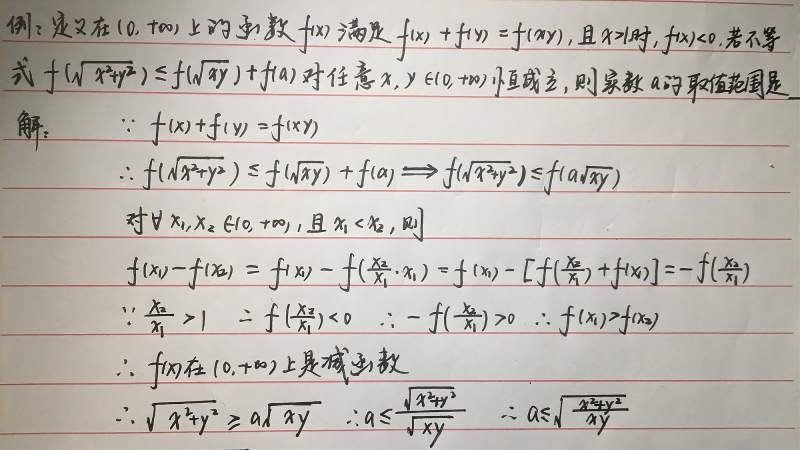 例：定义在(0,+∞)上的函数f(x)满足 f(x)+f(y)=f(xy),且x>1时,f(x)<0,若不等
式 f(√(x²+y²))≤f(√(xy))+f(a)对任意x,y∈(0,+∞)恒成立,则实数a的取值范围是_
解： ∵ f(x)+f(y)=f(xy)
∴ f(√(x²+y²))≤f(√(xy))+f(a)⟹f(√(x²+y²))≤f(a√(xy))
对∀x₁,x₂∈(0,+∞),且x₁<x₂,则
f(x₁)-f(x₂)=f(x₁)-f(x₂/x₁·x₁)=f(x₁)-[f(x₂/x₁)+f(x₁)]=-f(x₂/x₁)
∵ x₂/x₁>1 ∴ f(x₂/x₁)<0 ∴ -f(x₂/x₁)>0 ∴ f(x₁)>f(x₂)
∴ f(x)在(0,+∞)上是减函数
∴ √(x²+y²)≥a√(xy) ∴a≤√(x²+y²)/√(xy) ∴ a≤√((x²+y²)/xy)